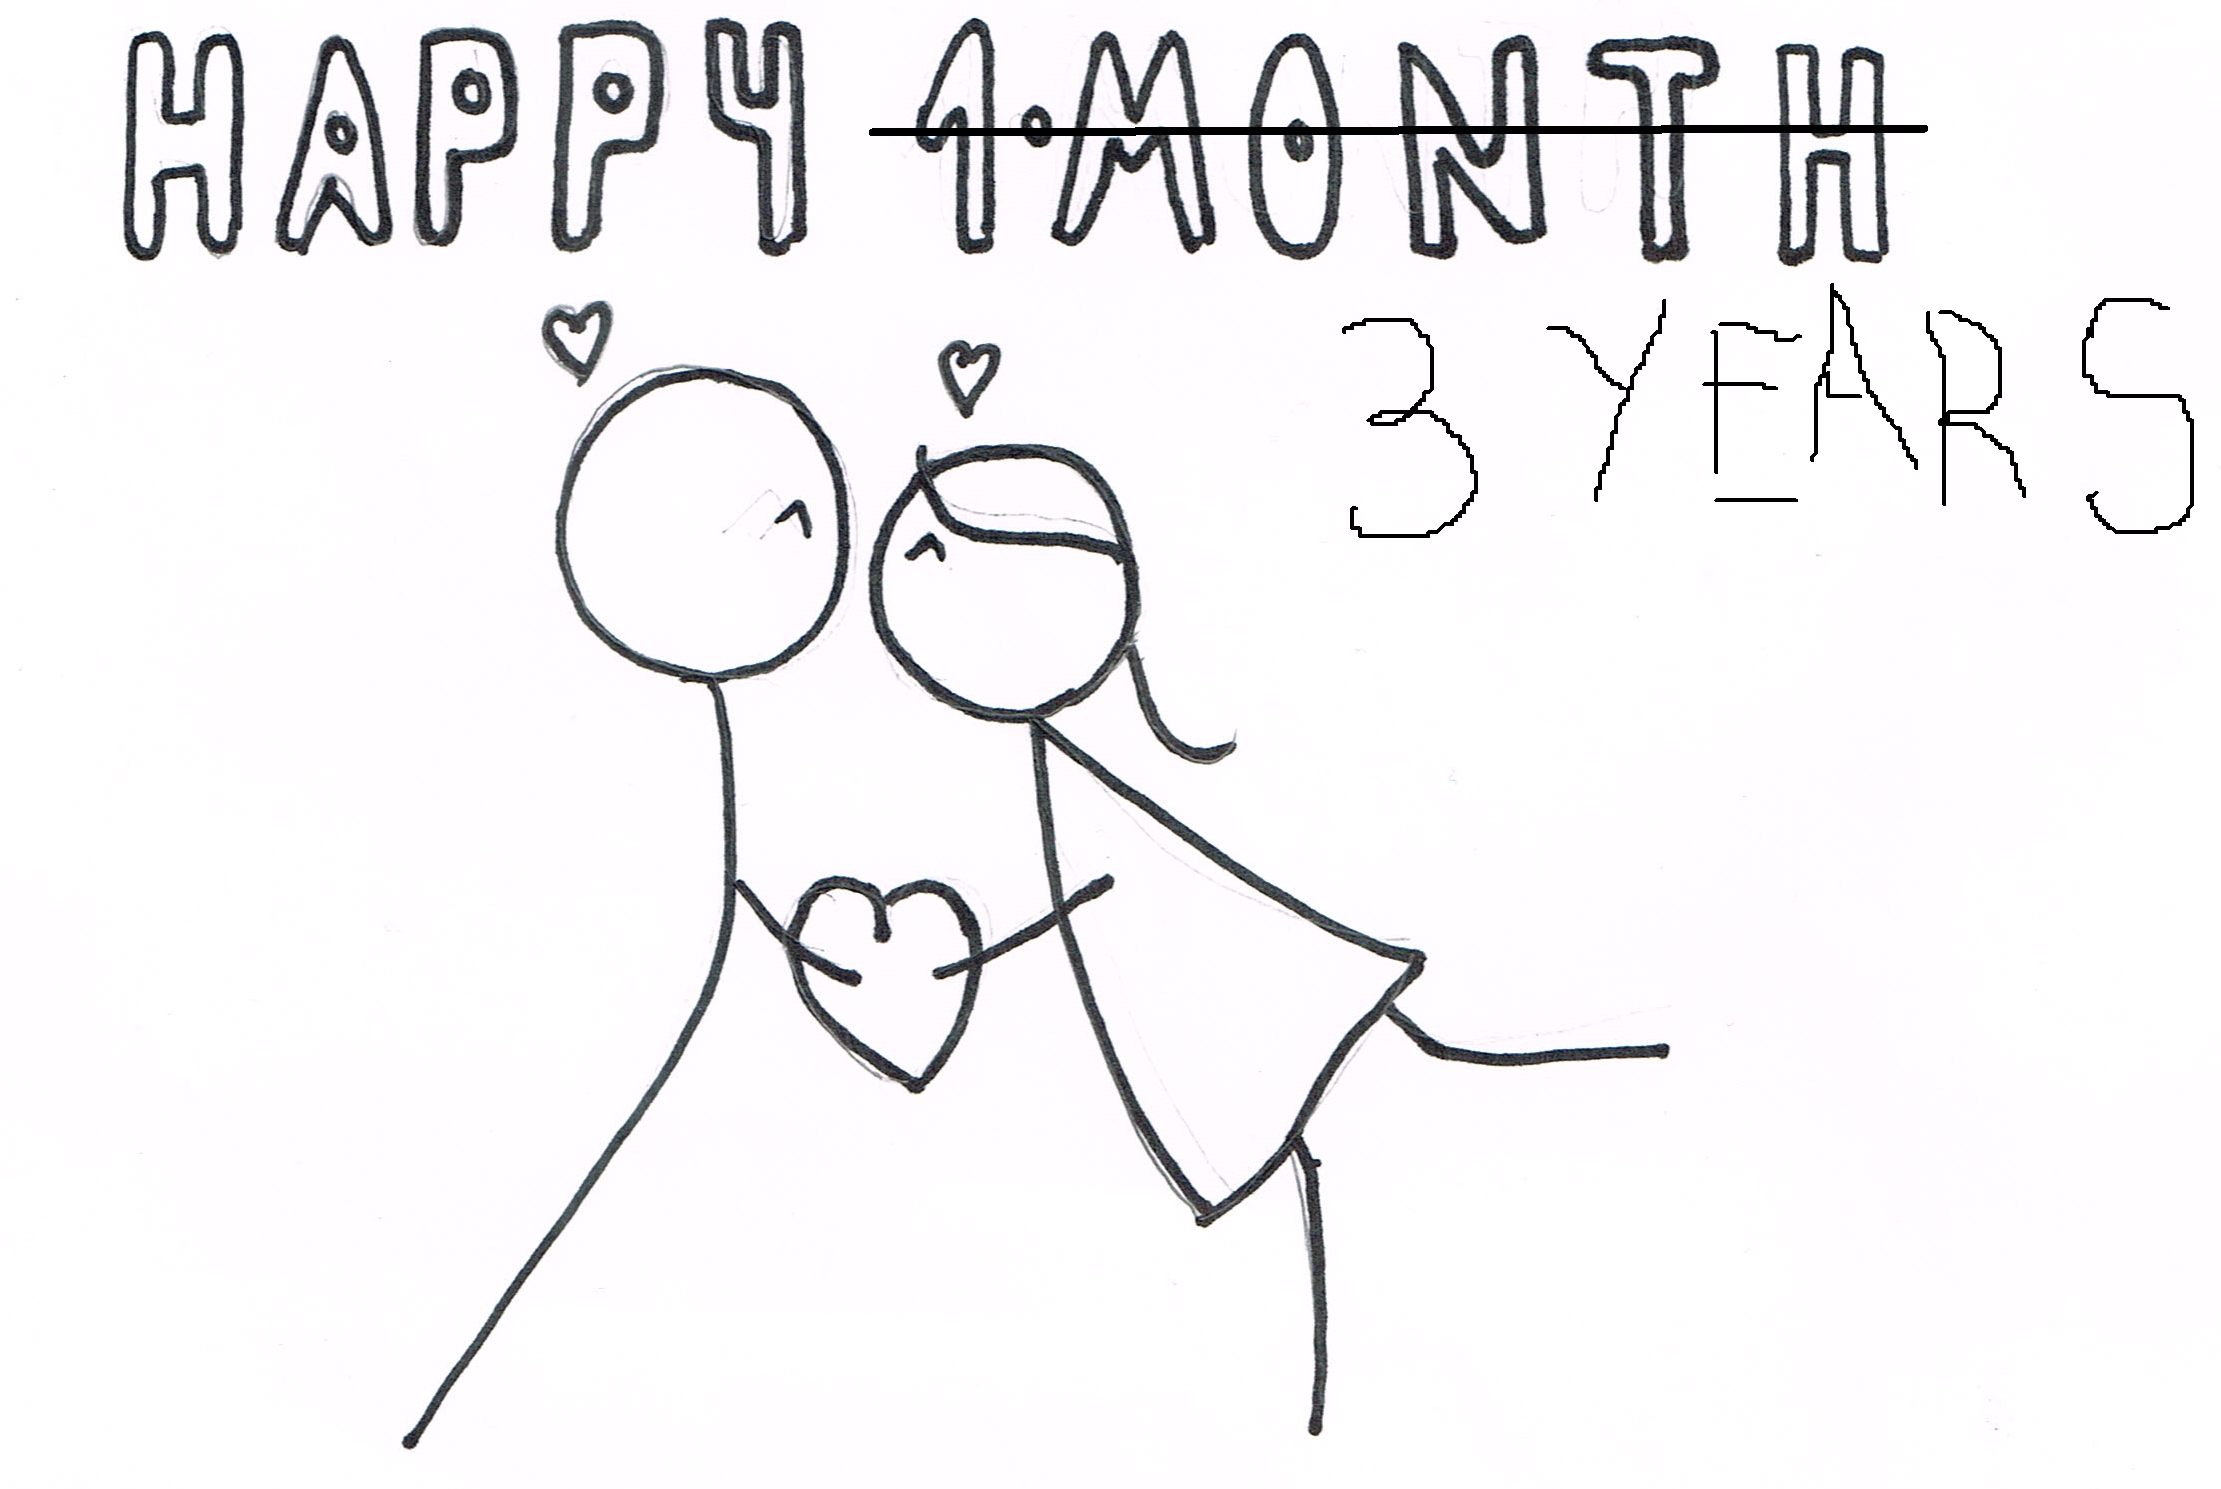 HAPPY 1. MONTH
3 YEARS